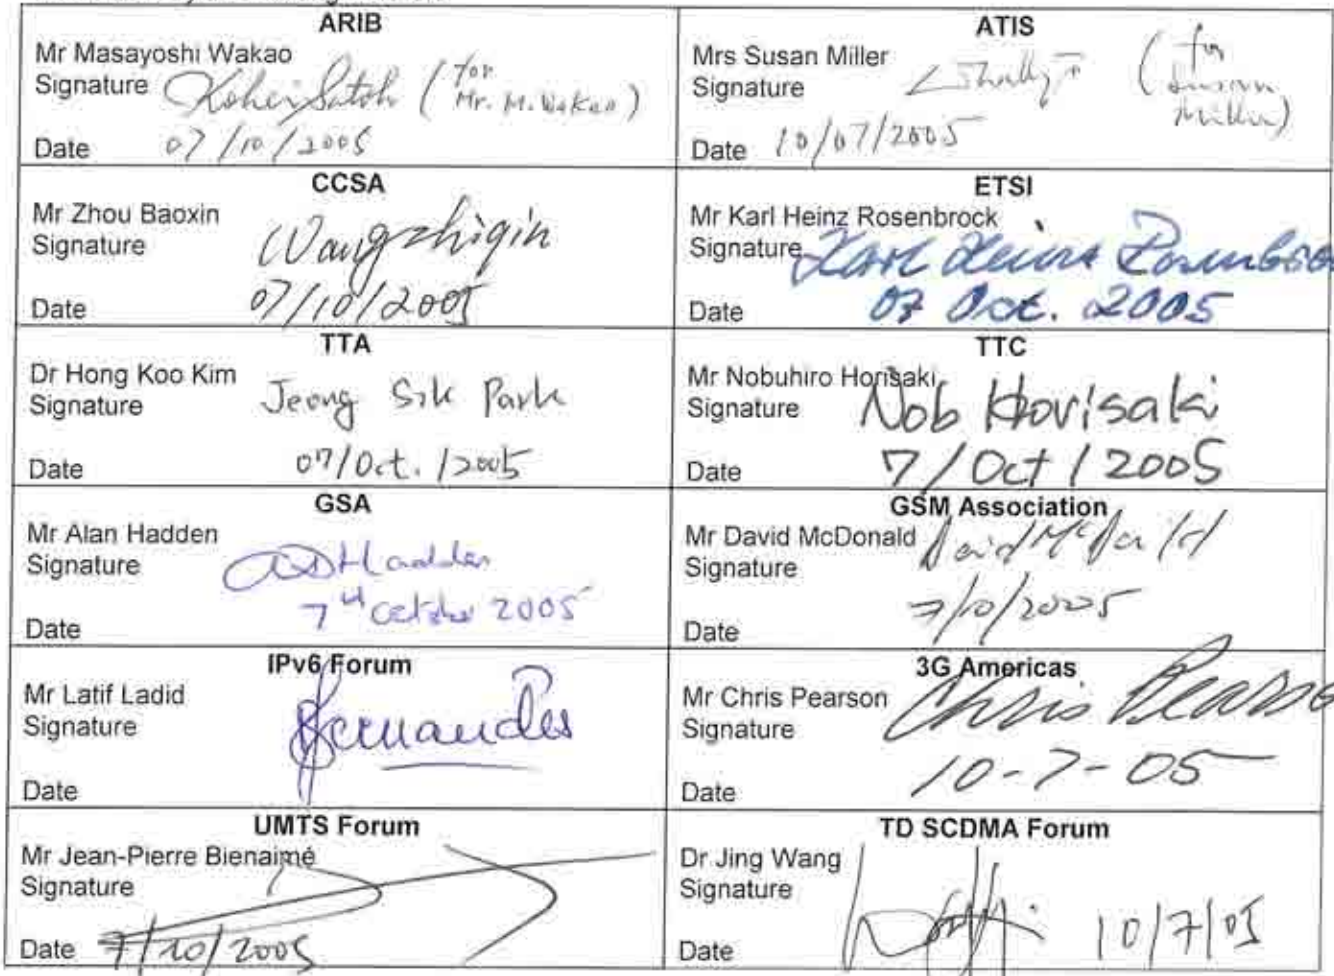 ARIB
Mr Masayoshi Wakao
Signature Kohei Satoh (for Mr. M. Wakao)
Date 07/10/2005
ATIS
Mrs Susan Miller
Signature (for Susan Miller)
Date 10/07/2005
CCSA
Mr Zhou Baoxin
Signature Wangzhiqin
Date 07/10/2005
ETSI
Mr Karl Heinz Rosenbrock
Signature Karl Heinz
Date 07 Oct. 2005
TTA
Dr Hong Koo Kim
Signature Jeong Sik Park
Date 07/Oct./2005
TTC
Mr Nobuhiro Horisaki
Signature Nob Horisaki
Date 7/Oct/2005
GSA
Mr Alan Hadden
Signature ADHadden
Date 7th October 2005
GSM Association
Mr David McDonald
Signature David McDonald
Date 7/10/2005
IPv6 Forum
Mr Latif Ladid
Signature Fernandes
Date
3G Americas
Mr Chris Pearson
Signature Chris Pearso
Date 10-7-05
UMTS Forum
Mr Jean-Pierre Bienaimé
Signature
Date 7/10/2005
TD SCDMA Forum
Dr Jing Wang
Signature
Date 10/7/05